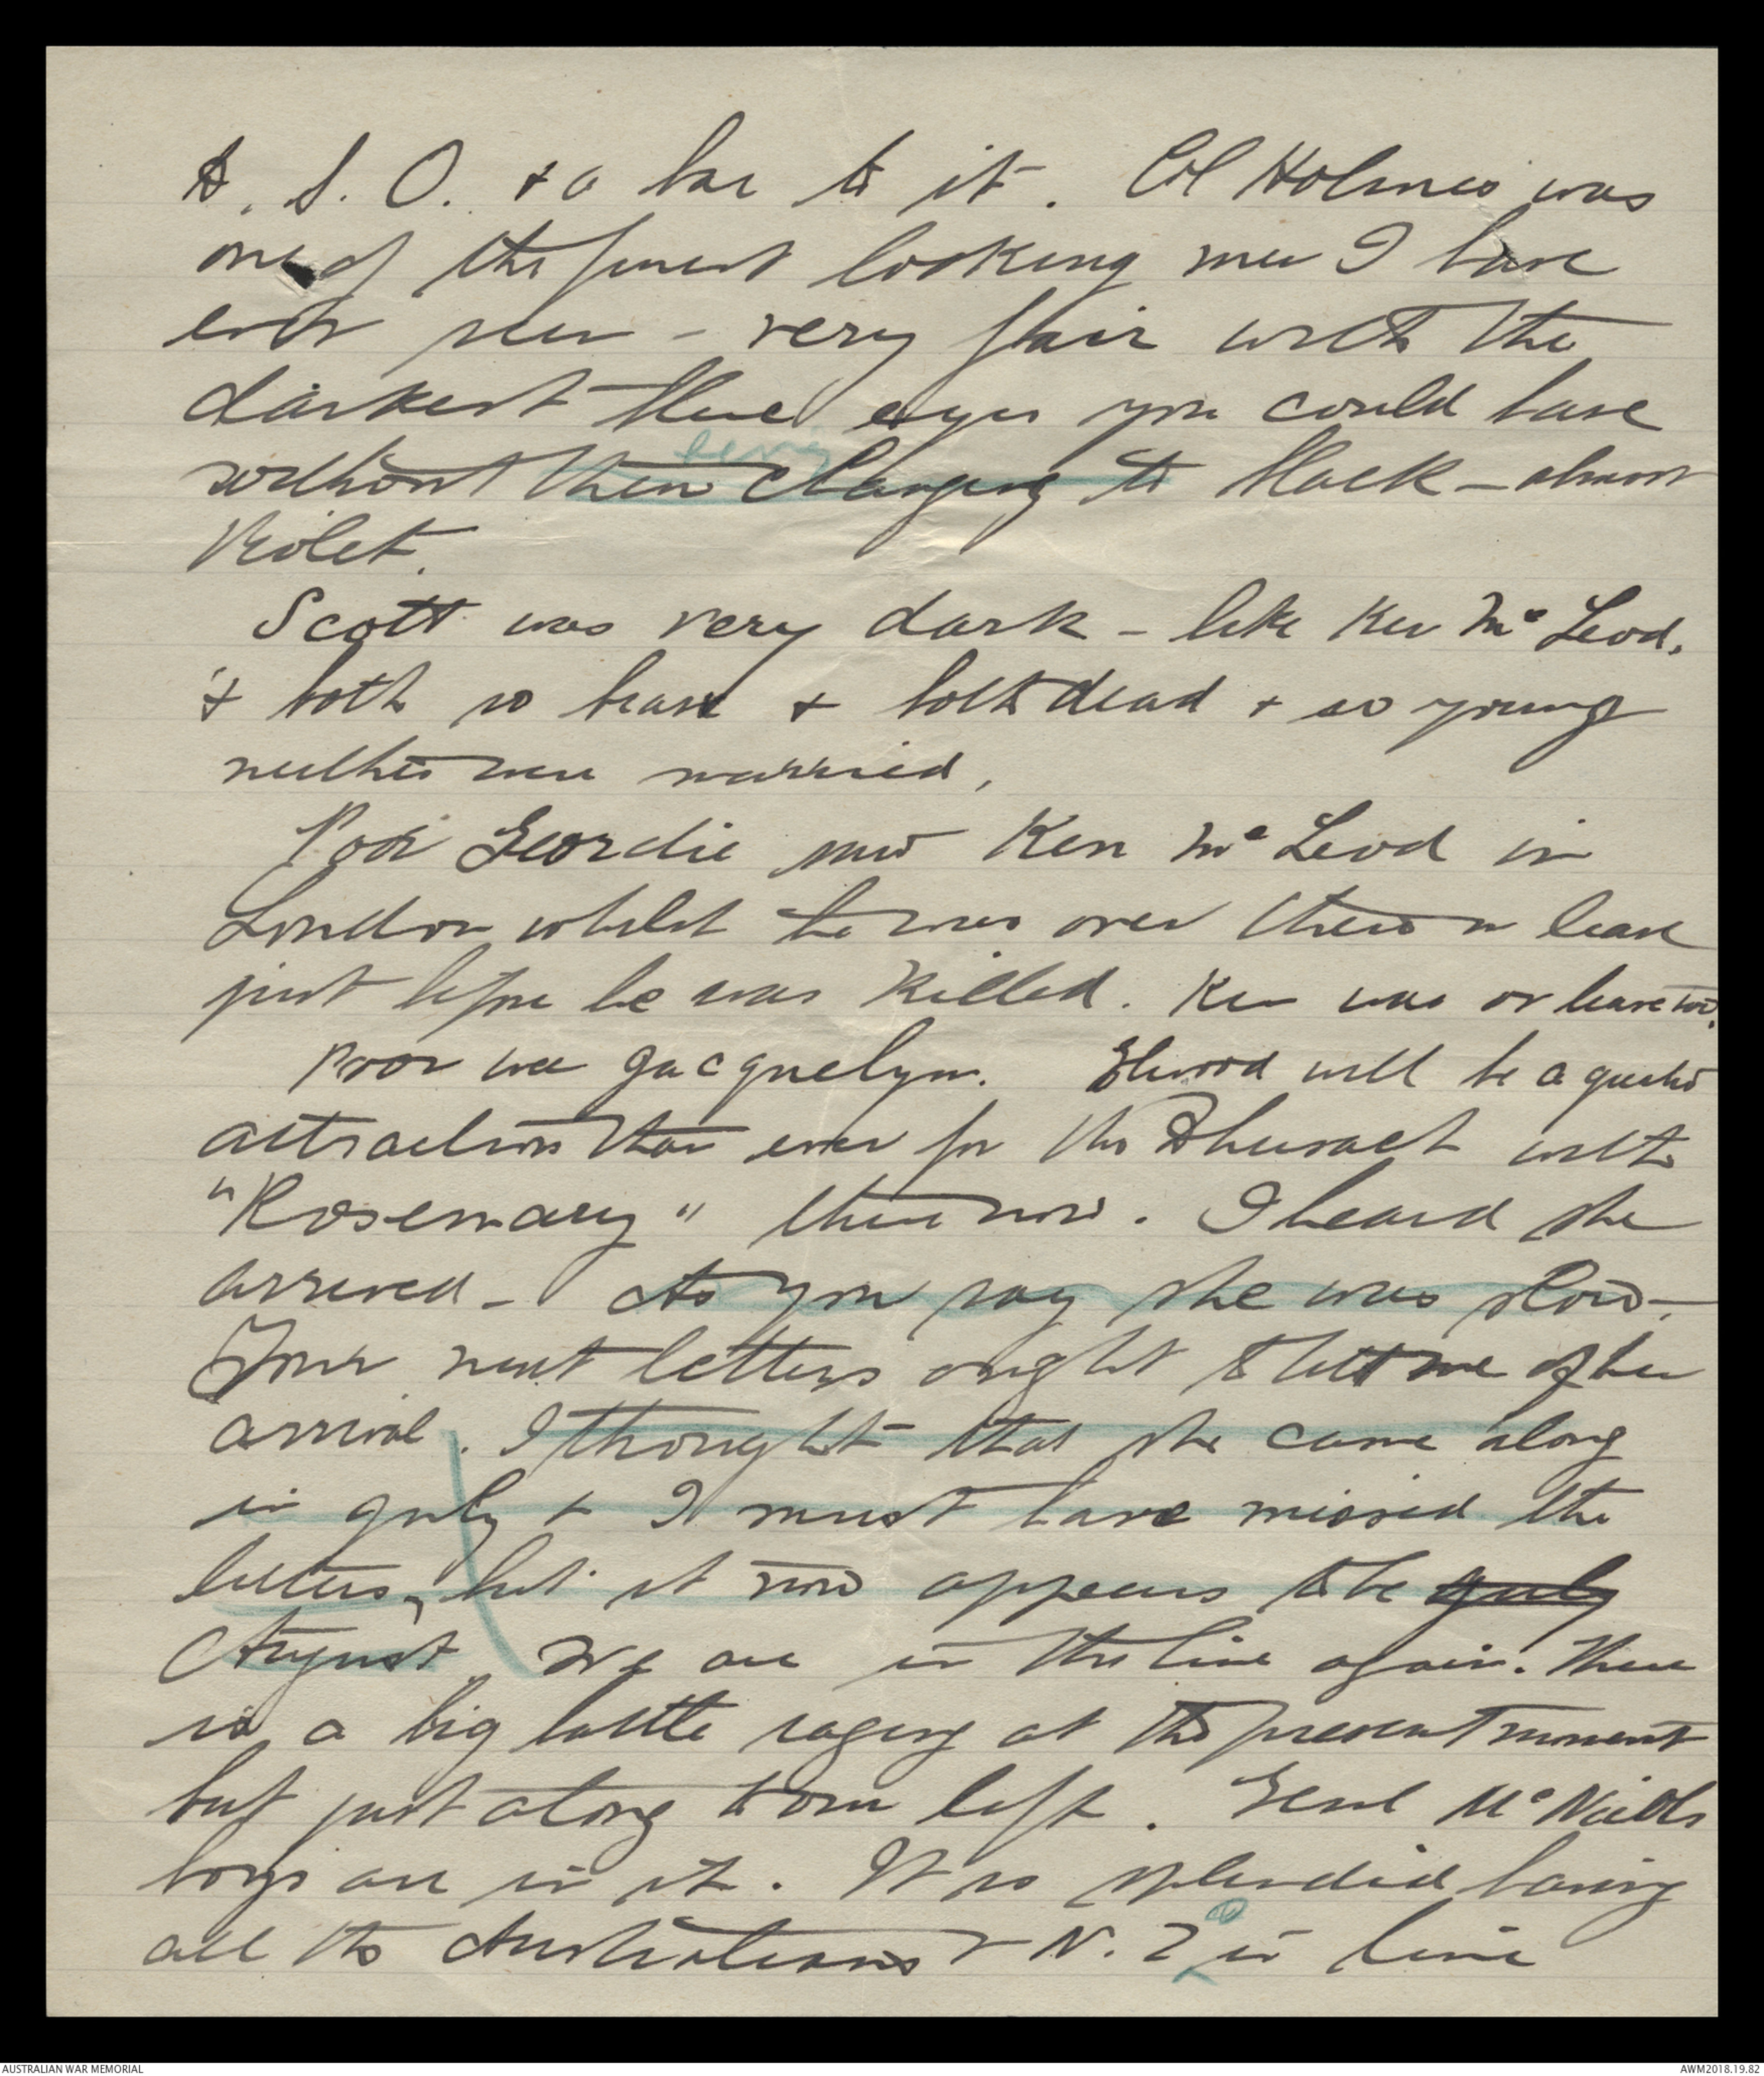 D. S. O. & a bar to it. Col Holmes was
one of the finest looking men I have
ever seen - very fair with the
darkest blue eyes you could have
being
without them changing to black - almost
Violet.
Scott was very dark - like Ken Mc Leod.
& both so brave & both dead & so young
neither were married.
Poor Geordie saw Ken Mc Leod in
London whilst he was over there on leave
just before he was killed. Ken was on leave too.
Poor wee Jacquelyn. Elwood will be a greater
attraction than ever for the with
"Rosemary" there now. I heard she
arrived - As you say she was slow -
Your next letters ought to tell me of her
arrival. I thought that she came along
in July & I must have missed the
letters, but it now appears to be July
August. We are in the line again. There
is a big battle raging at the present moment
but just along to our left. Genl
boys are in it. It is splendid having
all the Australians & N. Z in line
AUSTRALIAN WAR MEMORIAL
AWM2018.19.82